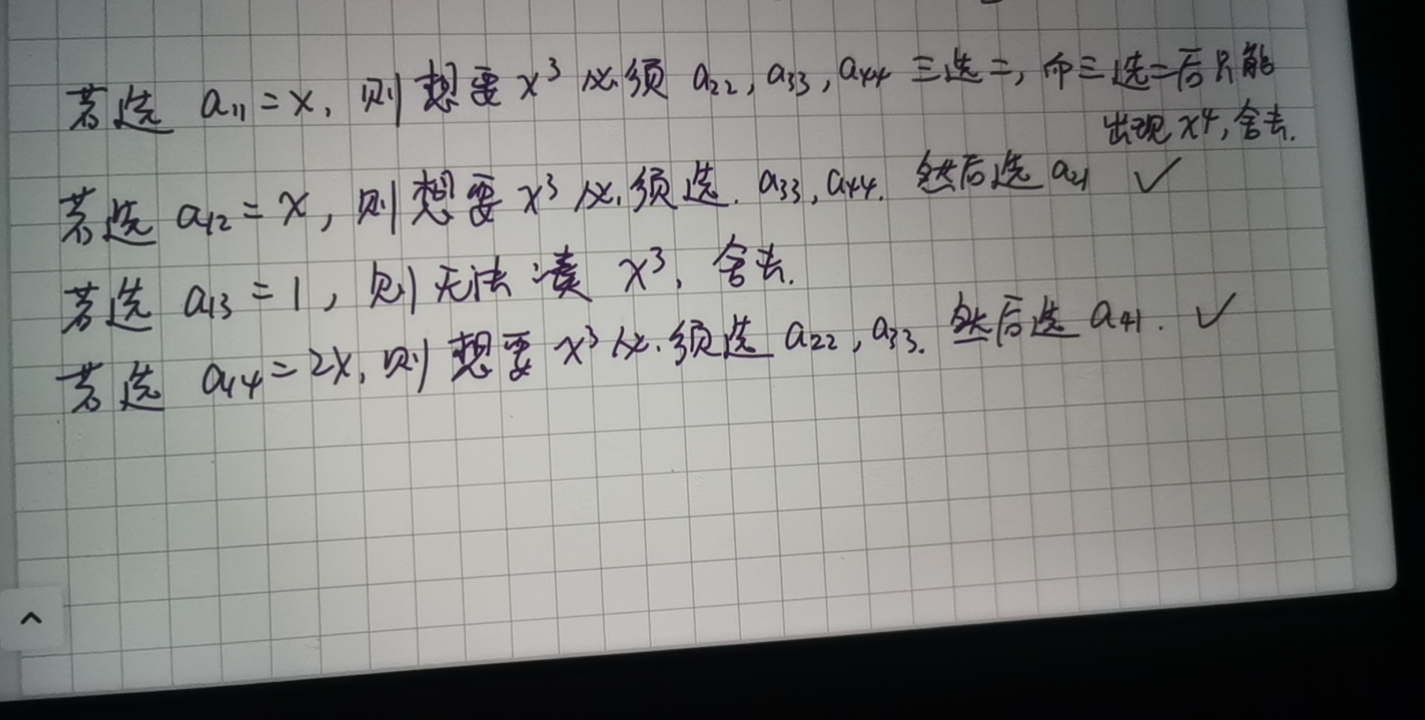 若选 a₁₁=x, 则想要 x³ 必须 a₂₂, a₃₃, a₄₄ 三选二, 而三选二后只能
出现 x⁴, 舍去.
若选 a₁₂=x, 则想要 x³ 必须选. a₃₃, a₄₄. 然后选 a₂₁ ✓
若选 a₁₃=1, 则无法凑 x³, 舍去.
若选 a₁₄=2x, 则想要 x³ 必须选 a₂₂, a₃₃. 然后选 a₄₁. ✓